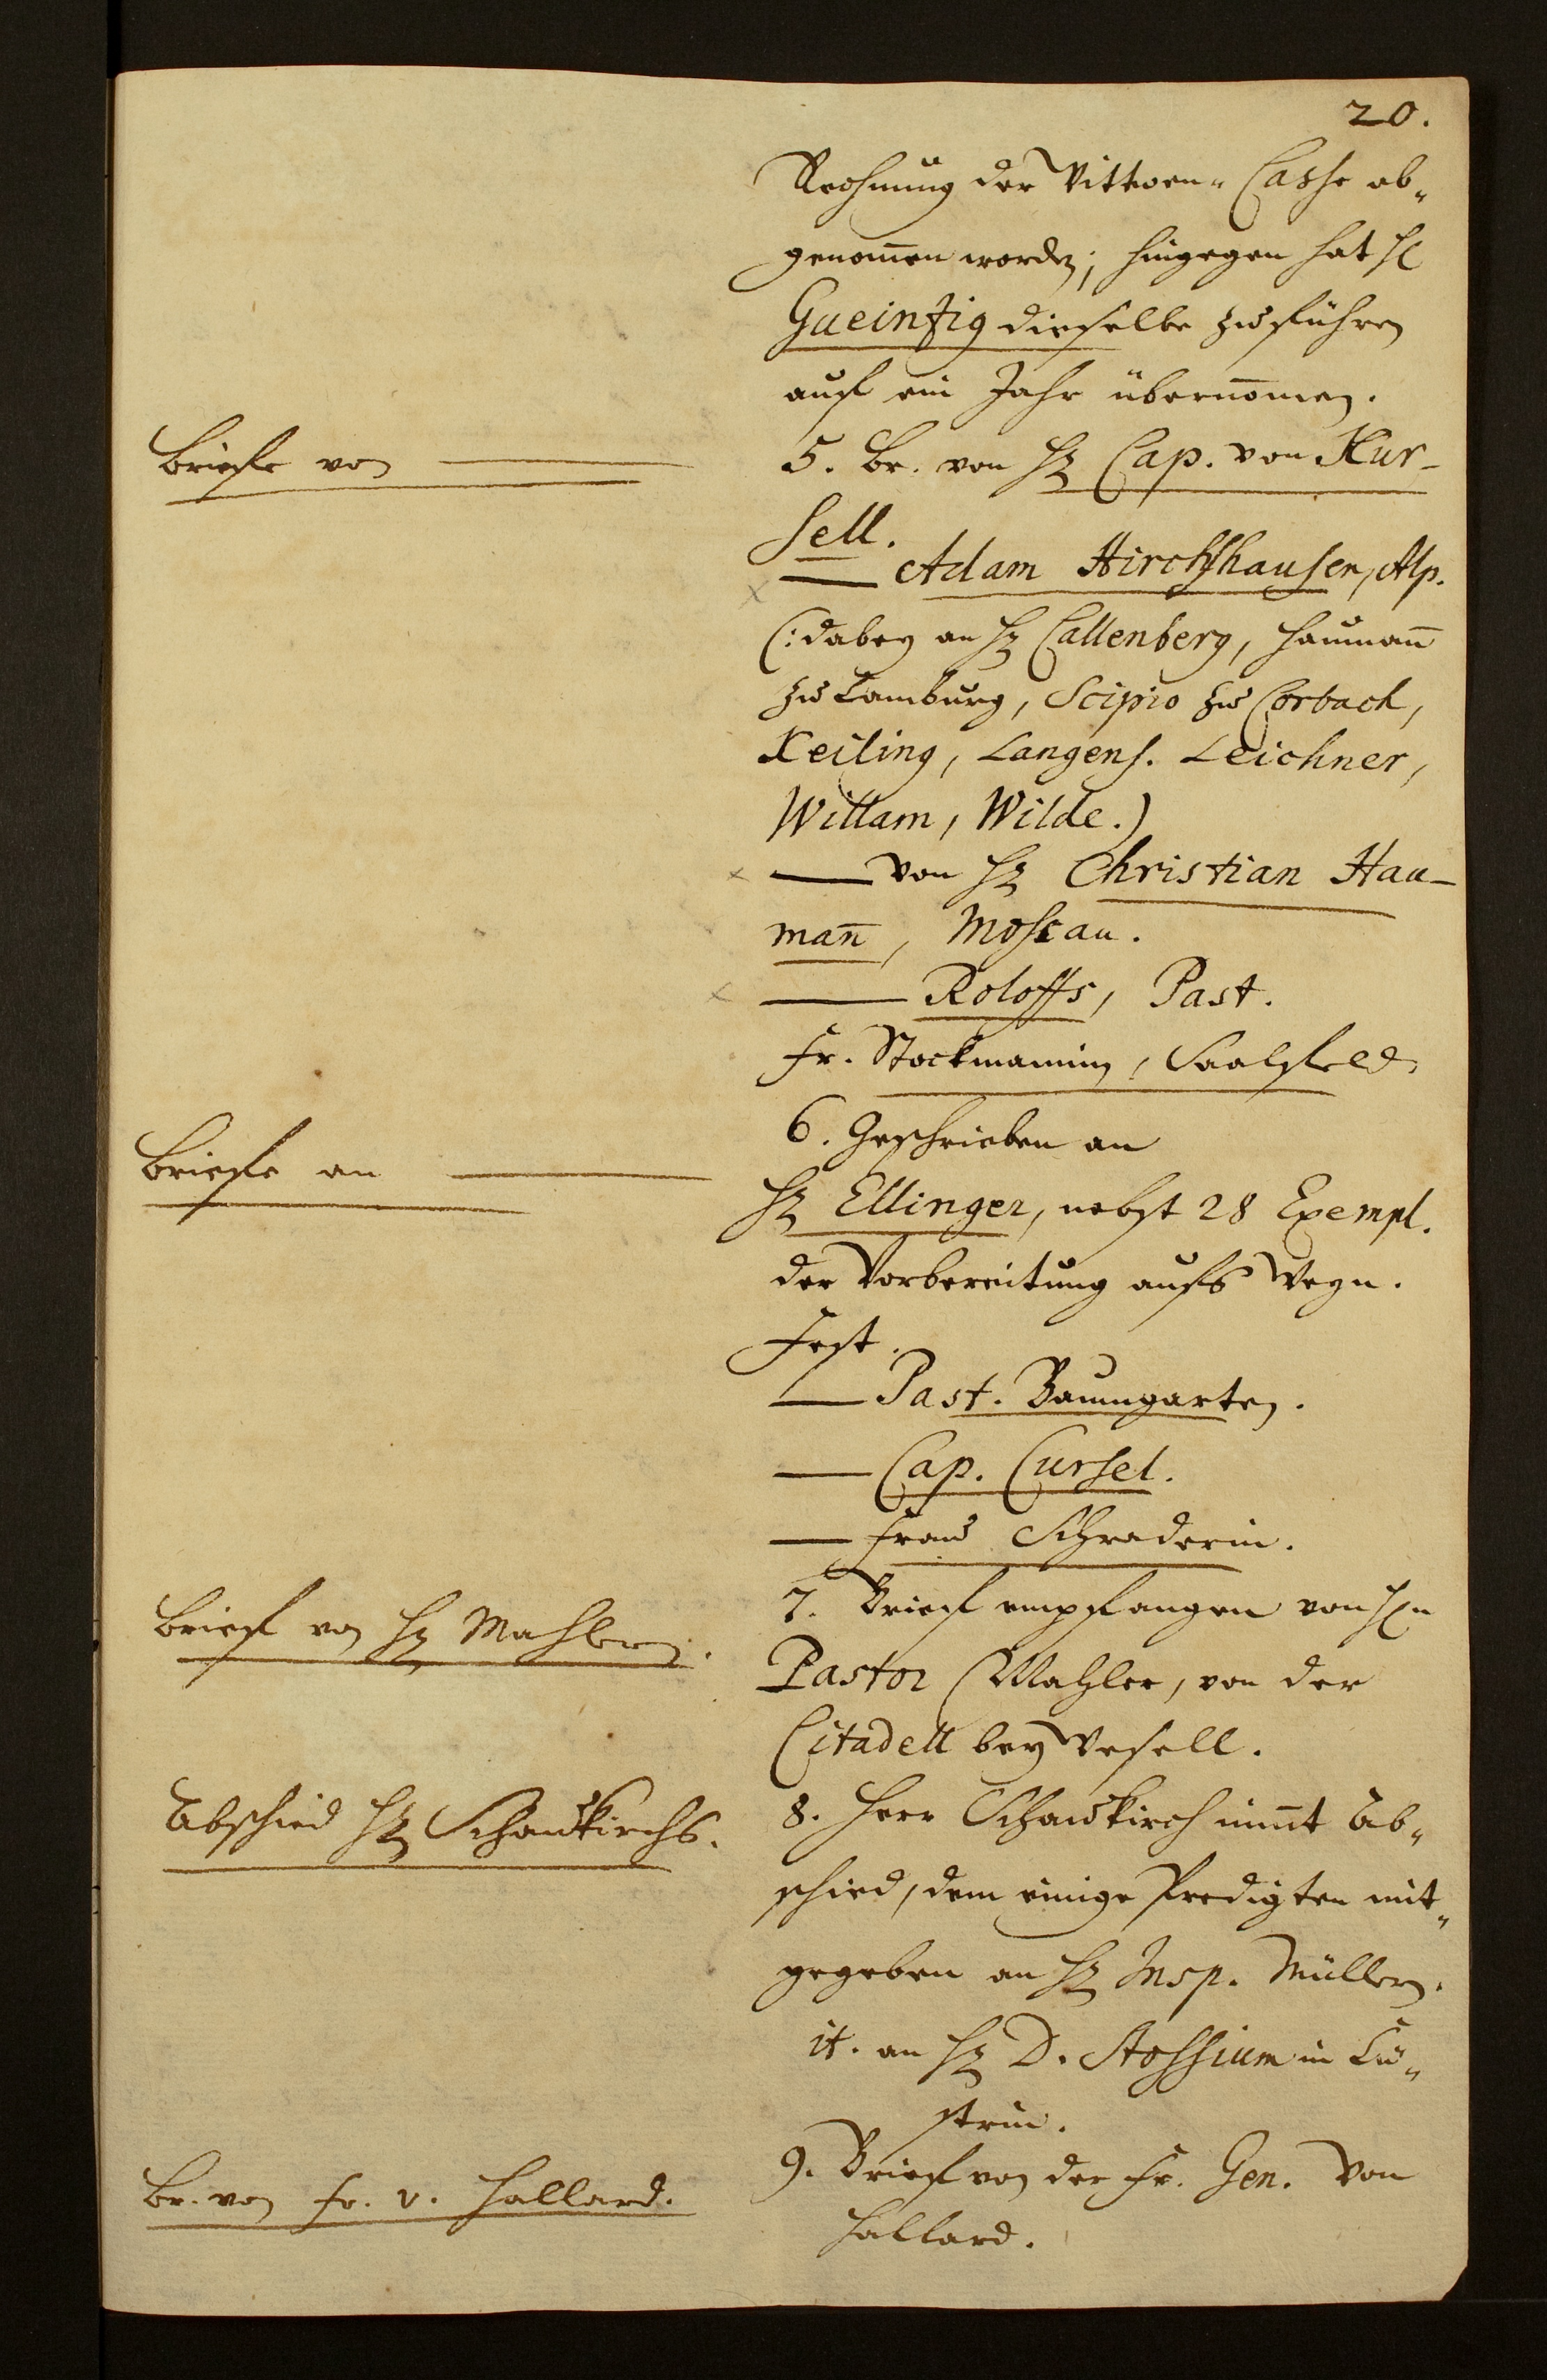 20.
Rechnung der Wittwen-Casse ab-
genom̄en worden; hingegen hat H.
Gueinzig dieselbe zu führen
auf ein Jahr übernom̄en.
Briefe von
5. Br. von H. Cap. von Kur-
sell.
Adam Hirchshausen, Alp.
(: dabey an H. Callenberg, Haumañ
zu Camburg, Scipio zu Corbach,
Keiling, Langens. Leichner,
Willam, Wilde.)
von H. Christian Hau-
mañ, Moscau.
Roloffs, Past.
Fr. Stockmannin, Saalfeld.
Briefe an
6. Geschrieben an
H. Ellinger, nebst 28 Exempl.
der Vorbereitung aufs Weyn.
Fest.
Past. Baumgarten.
Cap. Cursel.
Frau Schraderin.
Brief von H. Mahlern.
7. Brief empfangen von H.n
Pastor Mahler, von der
Citadell bey Wesell.
Abschied H. Schaukirchs.
8. Herr Schaukirch nim̄t Ab-
schied, dem einige Predigten mit-
gegeben an H. Insp. Müllern.
it. an H. D. Stossium in Cü-
strin.
Br. von Fr. v. Hallard.
9. Brief von der Fr. Gen. von
Hallard.